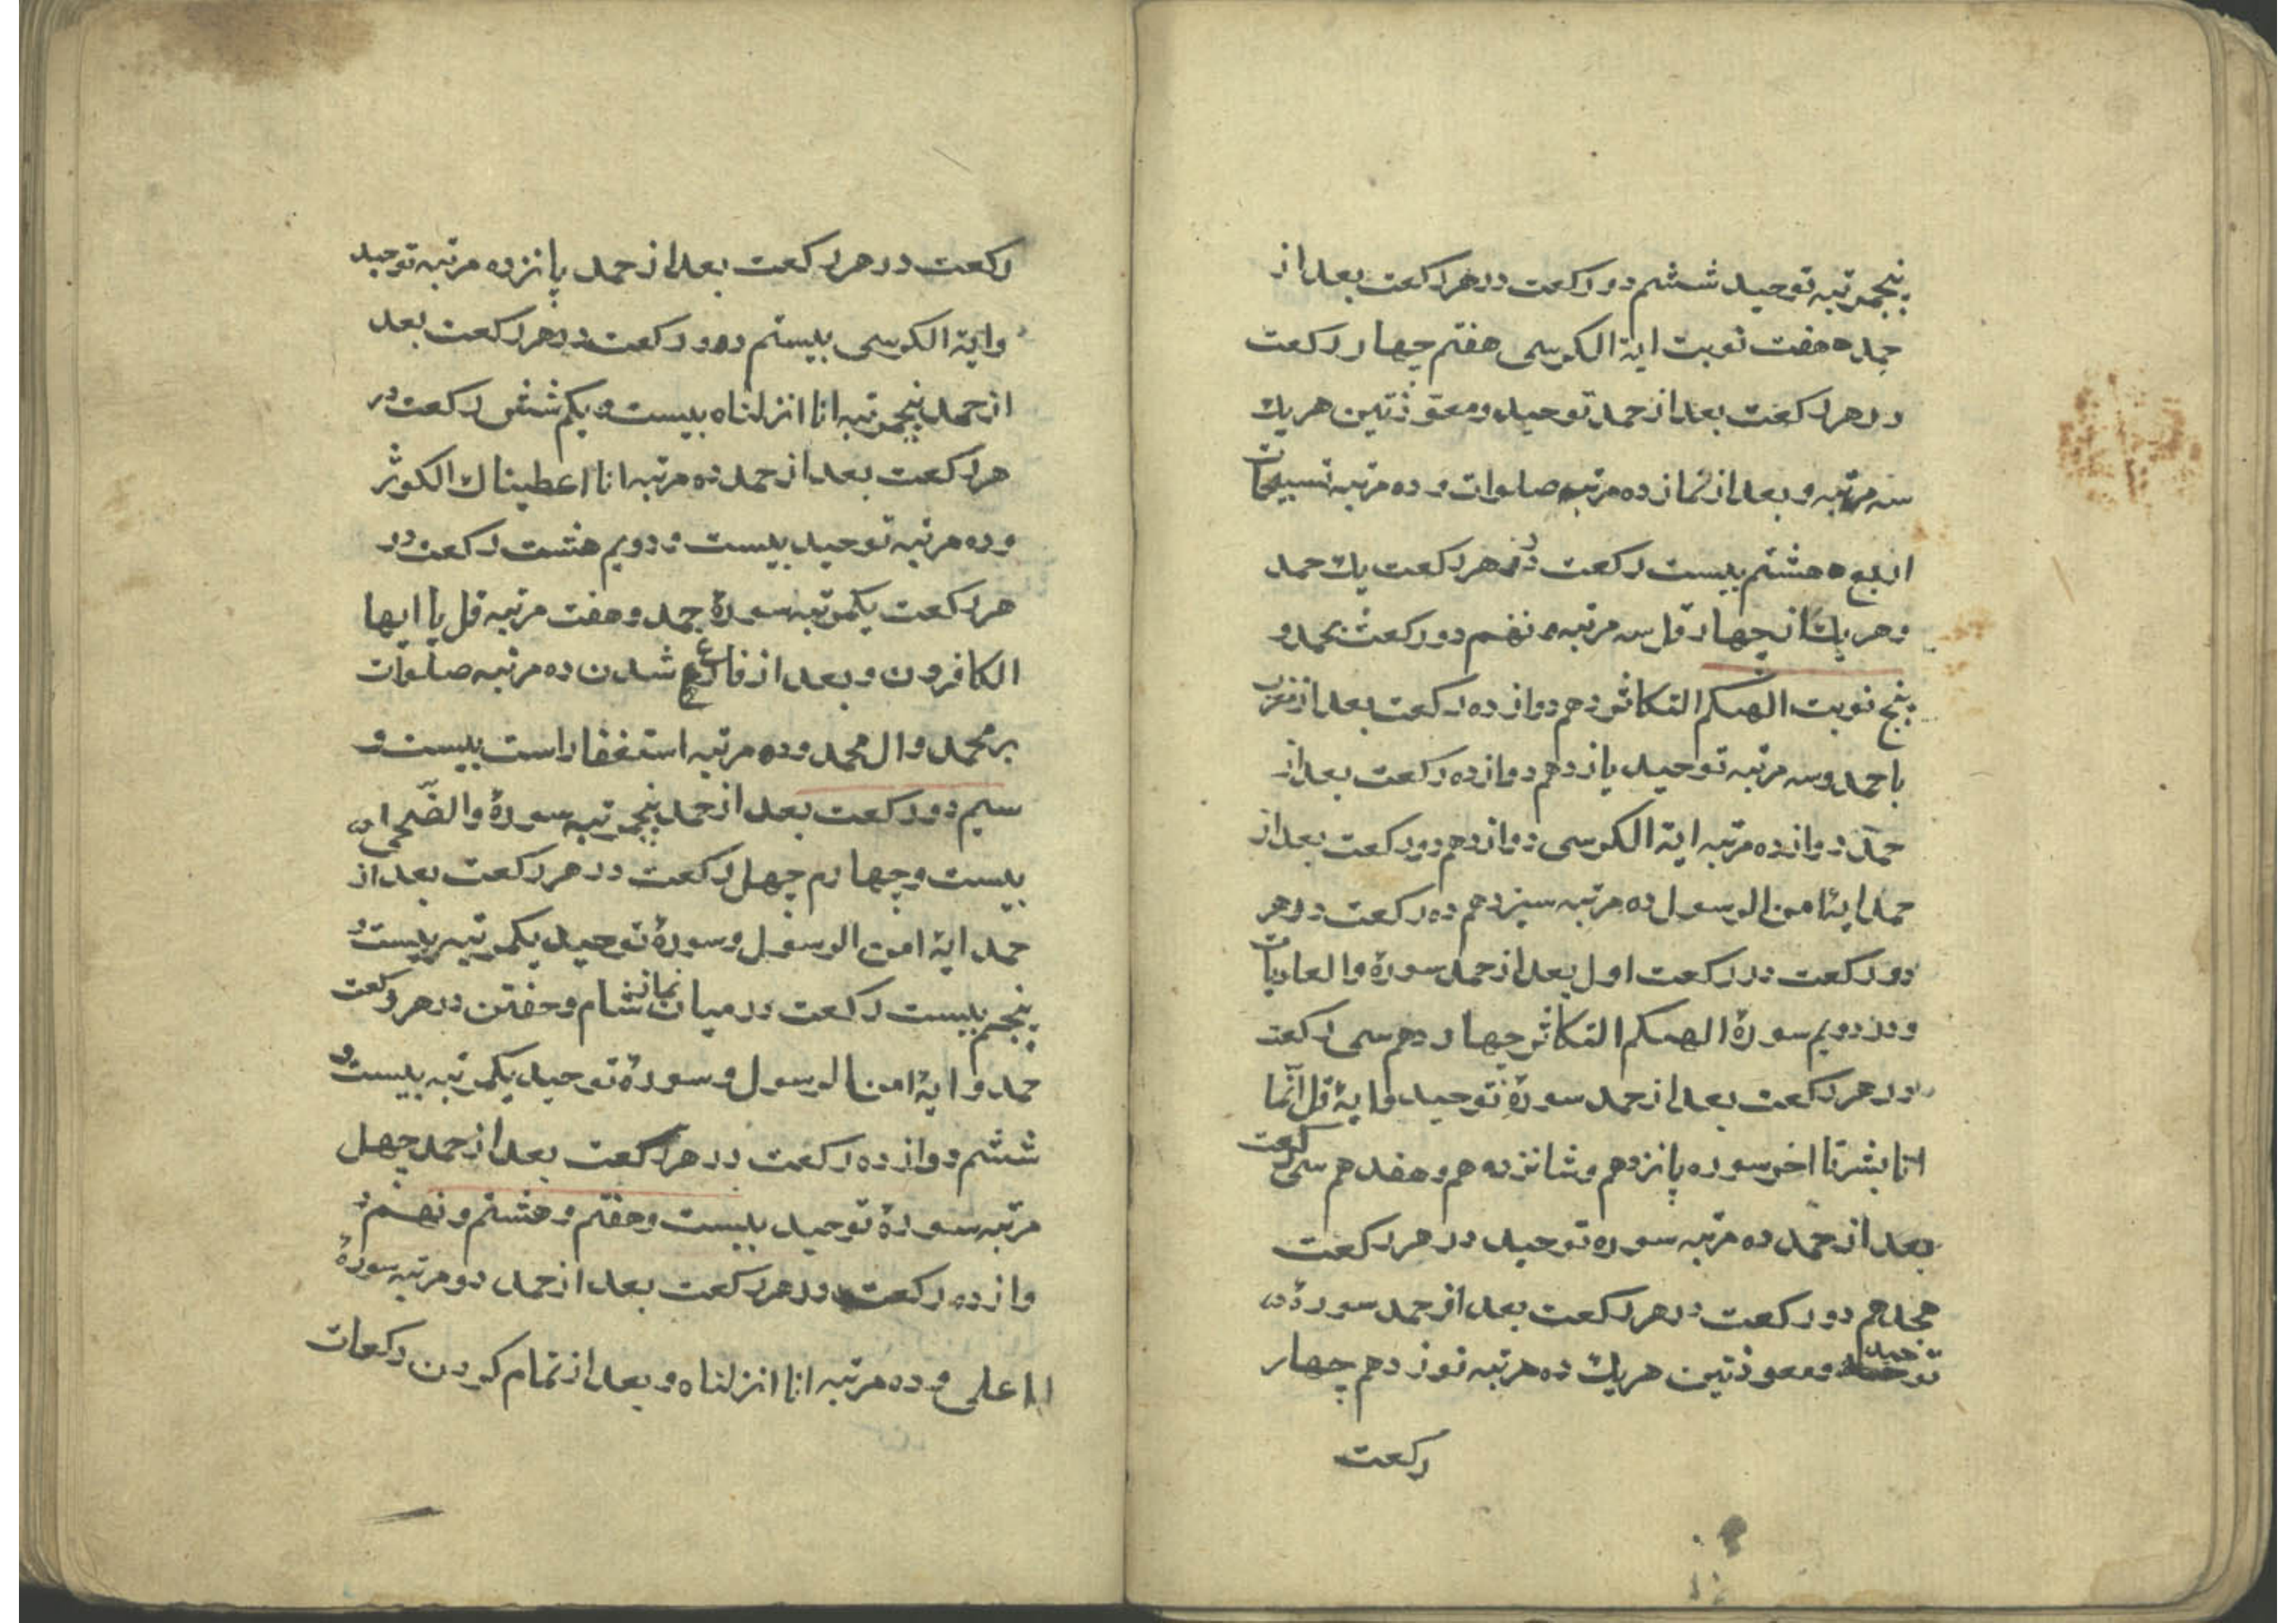 پنجمرتبه توحید ششم دو رکعت در هر رکعت بعد از
حمد هفت نوبت ایة الکرسی هفتم چهار رکعت
در هر رکعت بعد از حمد توحید و معوّذتین هر یك
سه مرتبه و بعد از نماز ده مرتبه صلوات و ده مرتبه تسبیحات
اربع هشتم بیست رکعت در هر رکعت یك حمد
و هر یك از چهار قل سه مرتبه نهم دو رکعت بحمد و
پنج نوبت الهیکم التکاثر دهم دوازده رکعت بعد از مغرب
با حمد و سه مرتبه توحید یازدهم دوازده رکعت بعد از
حمد دوازده مرتبه ایة الکرسی دوازدهم دو رکعت بعد از
حمد ایهٔ امن الرسول ده مرتبه سیزدهم ده رکعت در هر
دو رکعت در رکعت اول بعد از حمد سورهٔ والعادیات
و در دویم سورهٔ الهیکم التکاثر چهاردهم سی رکعت
در هر رکعت بعد از حمد سورهٔ توحید و ایهٔ قل انّما
انا بشر تا اخر سوره پانزدهم و شانزدهم و هفدهم سی رکعت
بعد از حمد ده مرتبه سوره توحید در هر رکعت
هجدهم دو رکعت در هر رکعت بعد از حمد سورهٔ
توحید و معوذتین هر یك ده مرتبه نوزدهم چهار
رکعت
رکعت در هر رکعت بعد از حمد پانزده مرتبه توحید
و ایة الکرسی بیستم دو رکعت در هر رکعت بعد
از حمد پنجمرتبه انا انزلناه بیست و یکم شش رکعت در
هر رکعت بعد از حمد ده مرتبه انا اعطیناك الکوثر
و ده مرتبه توحید بیست و دویم هشت رکعت در
هر رکعت یکمرتبه سورهٔ حمد و هفت مرتبه قل یا ایها
الکافرون و بعد از فارغ شدن ده مرتبه صلوات
بر محمد و ال محمد و ده مرتبه استغفار است بیست و
سیم دو رکعت بعد از حمد پنجمرتبه سورهٔ والضّحی
بیست و چهارم چهل رکعت در هر رکعت بعد از
حمد ایهٔ امن الرسول و سورهٔ توحید یکمرتبه بیست و
پنجم بیست رکعت در میان نماز شام و خفتن در هر رکعت
حمد و ایهٔ امن الرسول و سورهٔ توحید یکمرتبه بیست و
ششم دوازده رکعت در هر رکعت بعد از حمد چهل
مرتبه سورهٔ توحید بیست و هفتم و هشتم و نهم د
وازده رکعت در هر رکعت بعد از حمد دو مرتبه سورهٔ
الاعلی و ده مرتبه انا انزلناه و بعد از تمام کردن رکعات